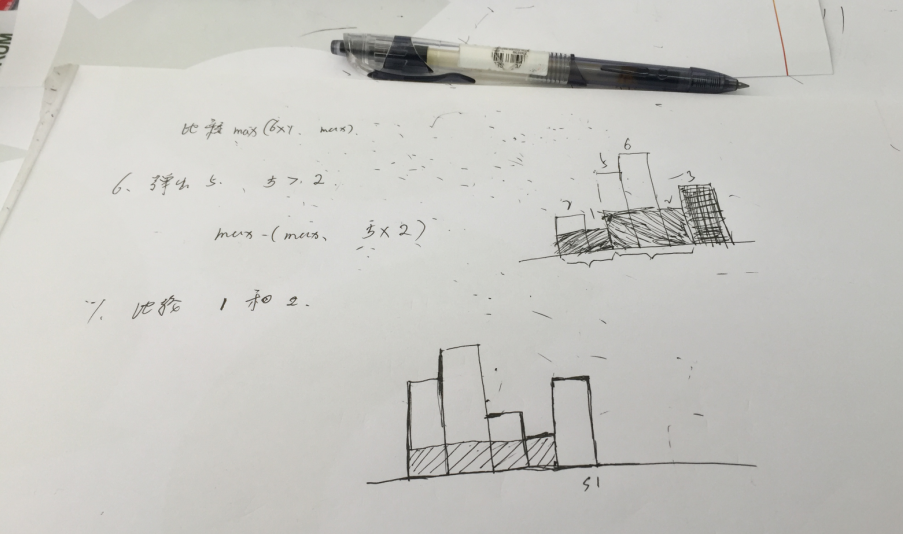 比较 max(6×1, max).
6、弹出 5、 5 > 2.
max-(max、 5×2)
7. 比较 1 和 2.
2
1
5
6
2
3
51